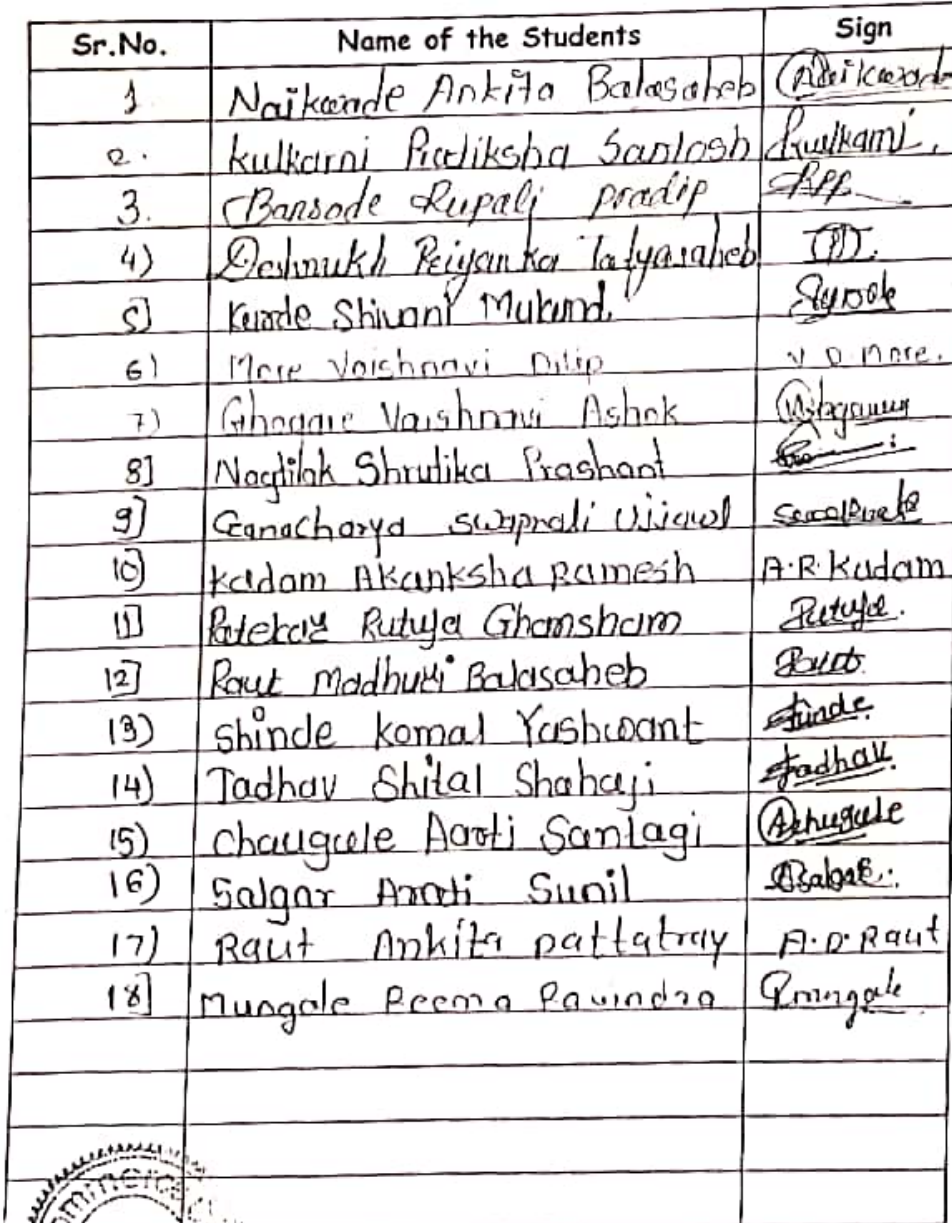 Sr.No. Name of the Students Sign
1 Naikwade Ankita Balasaheb Naikwade
2. Kulkarni Pratiksha Santosh Kulkarni.
3. Bansode Rupali pradip RPP
4) Deshmukh Priyanka Tatyasaheb
5] Shivani Mukund.
6) More Vaishnavi Dilip V D More.
7) Ghogare Vaishnavi Ashok
8] Nagtilak Shrutika Prashant
9] Ganacharya swapnali Ujjawl
10) Kadam Akanksha Ramesh A.R. Kadam
11] Patekar Rutuja Ghamsham Rutuja.
12] Raut Madhuri Balasaheb Raut.
13) Shinde Komal Yashwant Shinde.
14) Jadhav Shital Shahaji Jadhav.
15) Chaugule Aarti Santagi
16) Salgar Arati Sunil
17) Raut Ankita Dattatray A.D. Raut
18] Mungale Reema Ravindra Rmungale